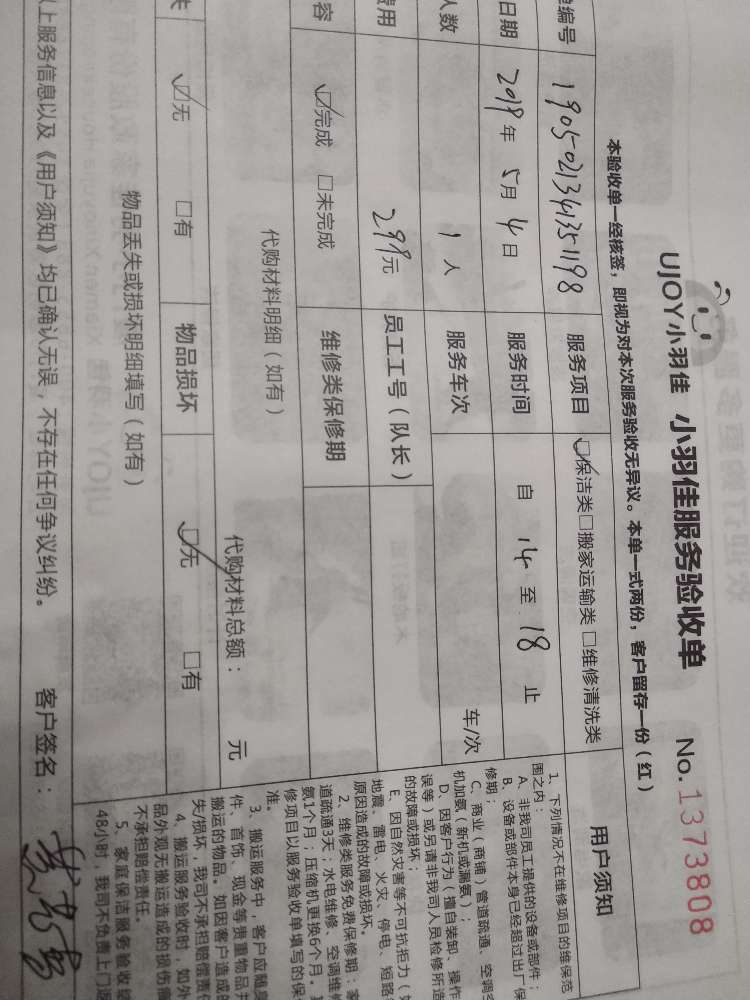 UJOY小羽佳 小羽佳服务验收单 No.1373808
本验收单一经核签，即视为对本次服务验收无异议。本单一式两份，客户留存一份（红）
编号 1905021341351198 服务项目 ☑保洁类□搬家运输类 □维修清洗类
日期 2019年 5月 4日 服务时间 自 14 至 18 止
人数 1 人 服务车次 车/次
费用 299元 员工工号（队长）
容 ☑完成 □未完成 维修类保修期
代购材料明细（如有） 代购材料总额： 元
失 ☑无 □有 物品损坏 ☑无 □有
物品丢失或损坏明细填写（如有）
以上服务信息以及《用户须知》均已确认无误，不存在任何争议纠纷。 客户签名：
用户须知
1、下列情况不在维修项目的维保范
围之内：
A、非我司员工提供的设备或部件；
B、设备或部件本身已经超过出厂保
修期；
C、商业（商铺）管道疏通、空调
机加氨（新机或漏氨）；
D、因客户行为（擅自装卸、操作
误等）或另请非我司人员检修所造
的故障或损坏；
E、因自然灾害等不可抗拒力（
地震、雷电、火灾、停电、短路
原因造成的故障或损坏。
2、维修类服务免费保修期：家
道疏通3天；水电维修、空调维修
氨1个月；压缩机更换6个月。
修项目以服务验收单填写的保
准。
3、搬运服务中，客户应随身
件、首饰、现金等贵重物品并
搬运的物品。如因客户造成的
失/损坏，我司不承担赔偿责任
4、搬运服务验收时，如外
品外观无搬运造成的损伤痕
不承担赔偿责任。
5、家庭保洁服务验收结
48小时，我司不负责上门返